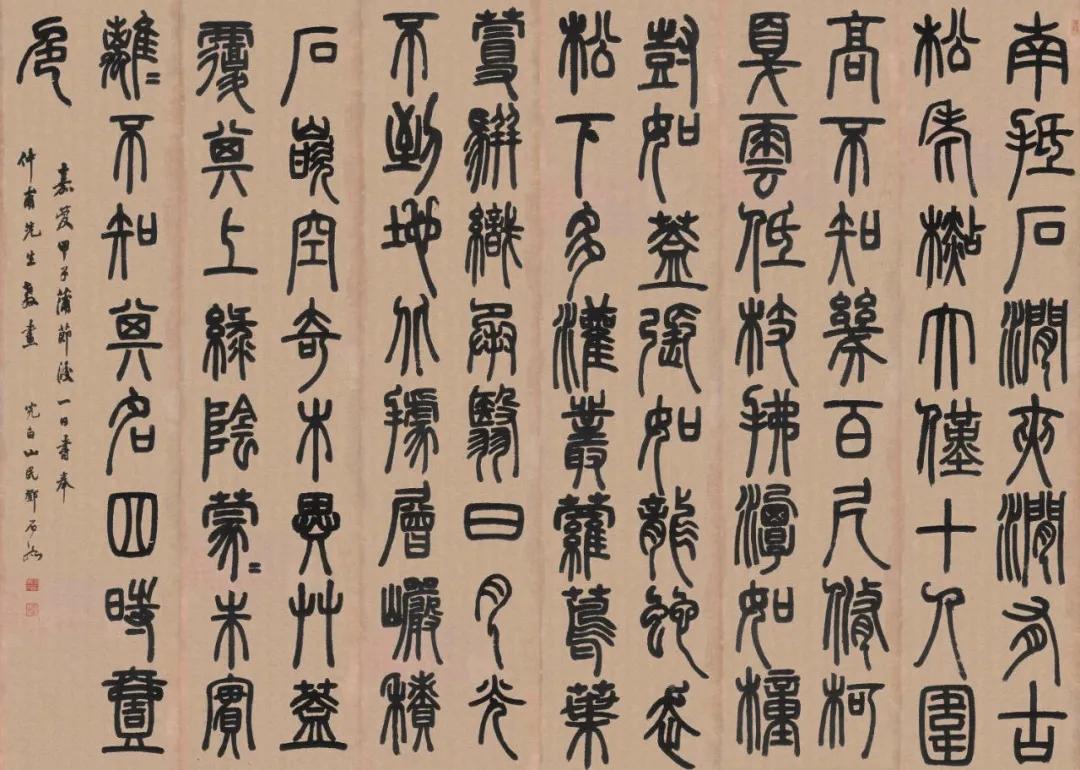 南抵石澗夾澗有古
松老杉大僅十人圍
高不知幾百尺脩柯
戛雲低枝拂潭如橦
尌如蓋張如龍蛇走
松下多灌叢蘿蔦葉
蔓駢織承翳日月光
不到地北據層巖積
石嵌空奇木異艸蓋
覆其上綠陰蒙〻朱實
離〻不知其名四時壹
色
嘉慶甲子蒲節後一日書奉
仲甫先生教畫 完白山民鄧石如